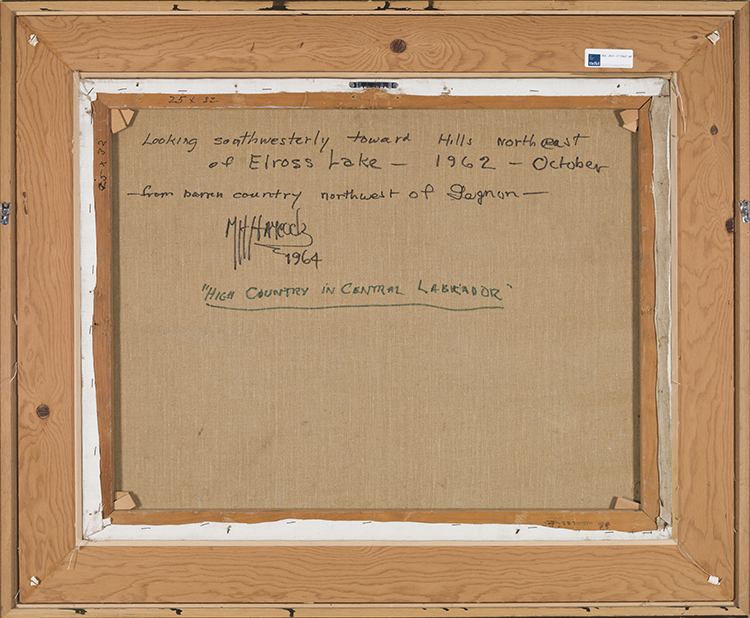 25 x 32
25 x 32
Looking southwesterly toward Hills northeast
of Elross Lake — 1962 — October
— from barren country northwest of Gagnon —
M H Haycock
1964
"HIGH COUNTRY IN CENTRAL LABRADOR"